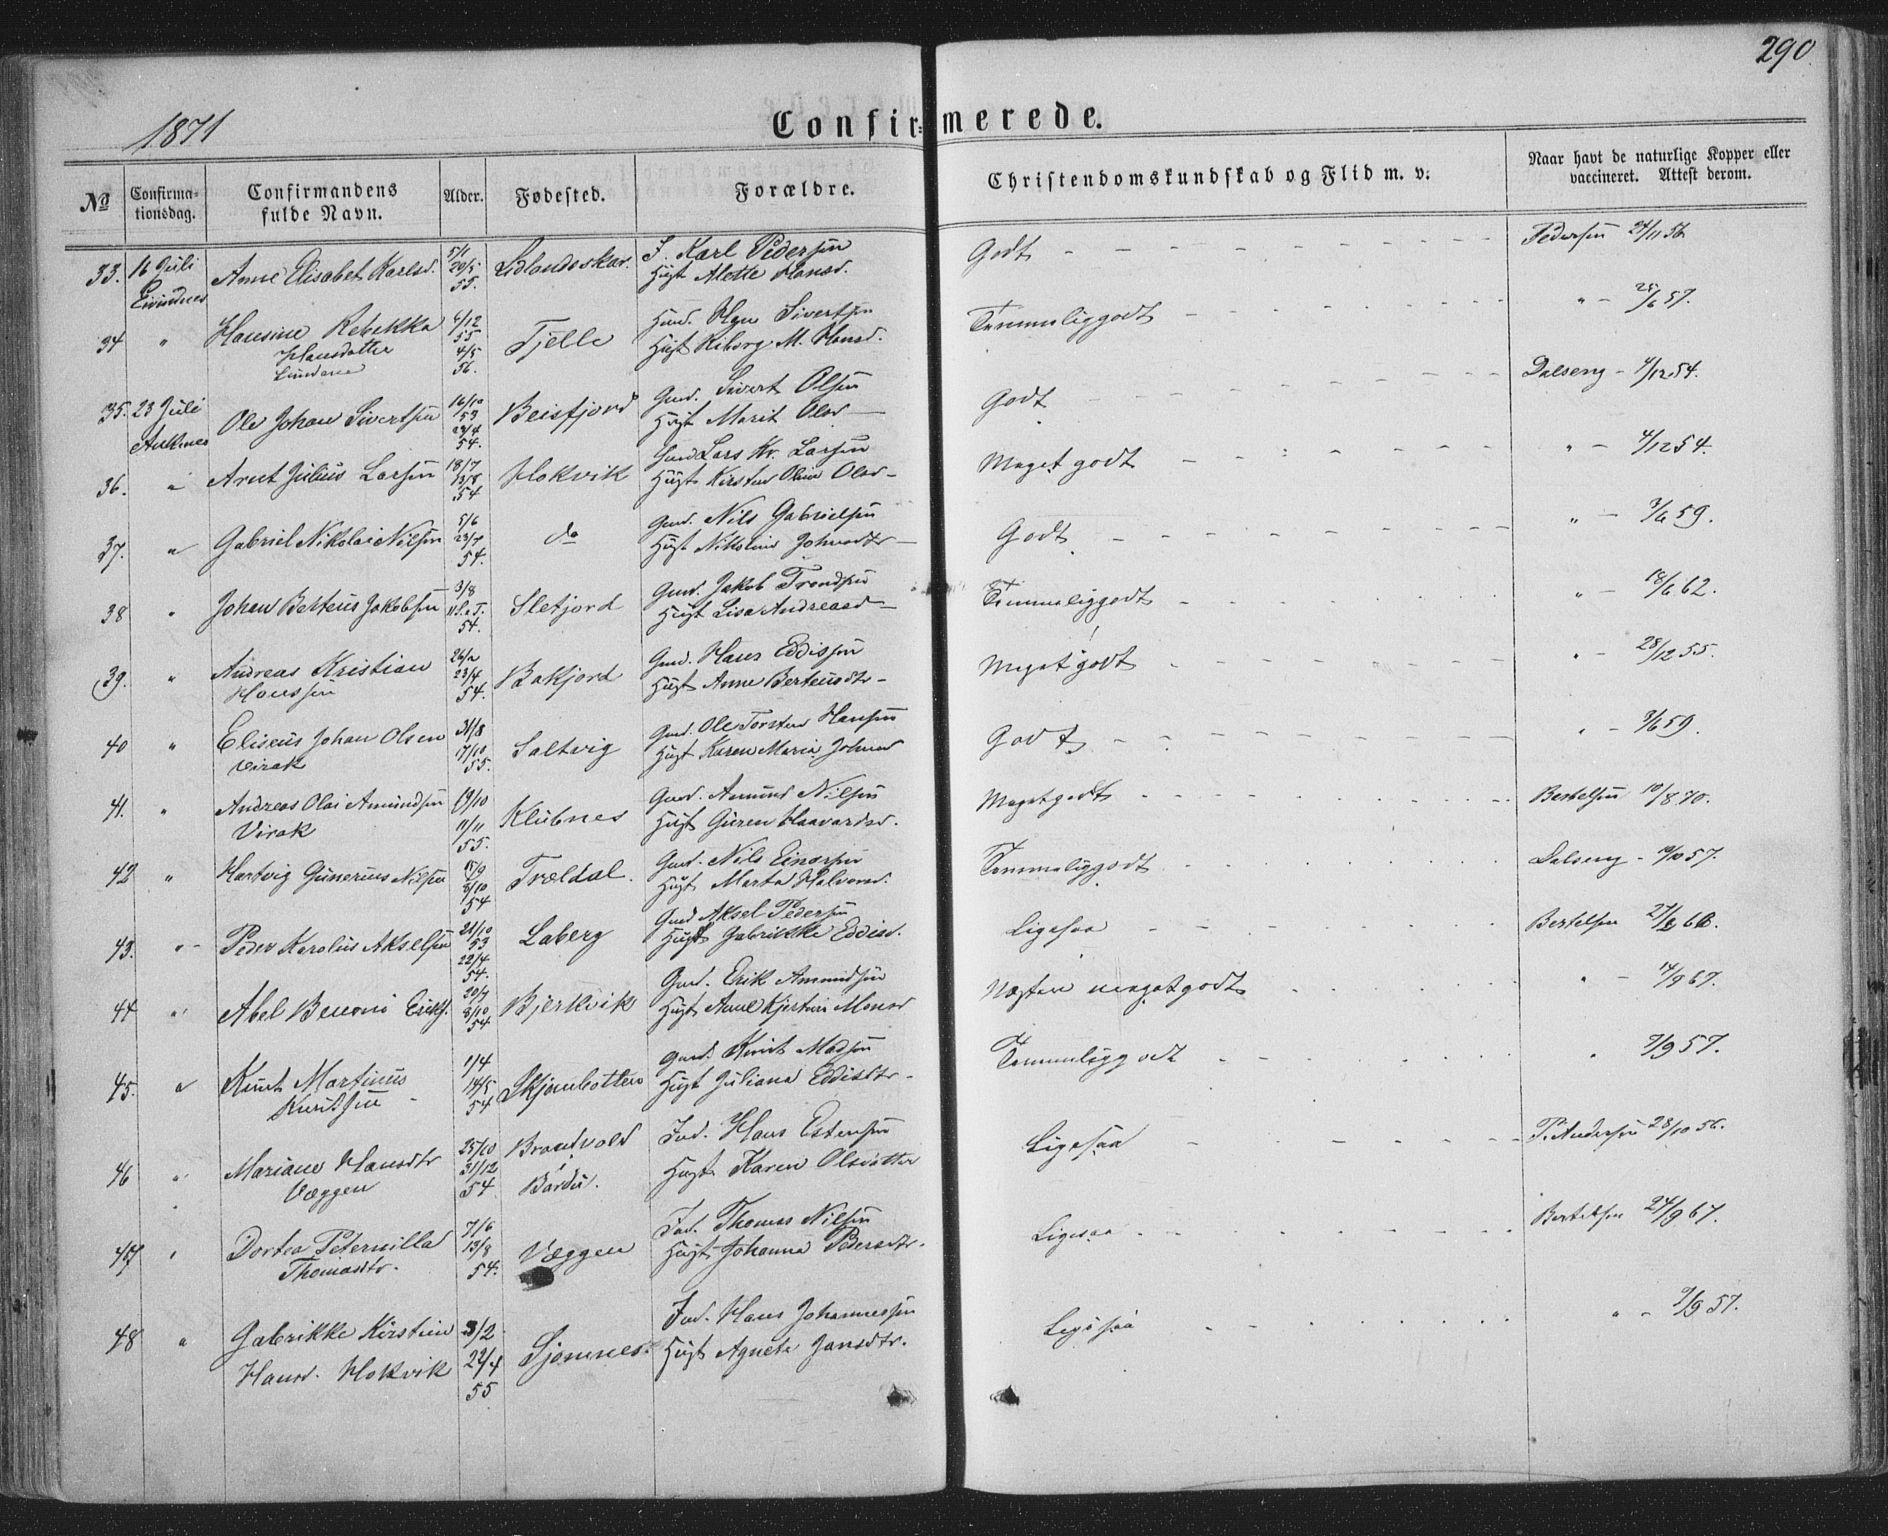 290.
1871
Confirmerede.
No Confirmationsdag. Confirmandens fulde Navn. Alder. Fødested. Forældre. Christendomskundskab og Flid m. v. Naar havt de naturlige Kopper eller vaccineret. Attest derom.
33. 16 Juli Anne Elisabet Karlsd. 5/1 20/5 55. F. Karl Pedersen Hust Alette Hansd. Godt Pedersen 24/11 56
34 " Hansine Rebekka Hansdatter 4/12 55 4/5 56. Tjelle Sivertsen Hust M. Hansd. Temmeliggodt " 6 57.
35. 23 Juli Ankenes Ole Johan Sivertsen 16/10 53 23/4 54. Beisfjord Gmd. Sivert Olsen Hust Marit Olsd Godt Dalseng 4/12 54.
36. " Arnt Julius Larsen 18/7 13/8 54 Hokvik Gmd Lars Kr. Larsen Hust Kirsten Oline Olsd Meget godt " 4/12 54.
37. " Gabriel Nikolai Nilsen 5/6 23/7 54. do Gmd. Nils Gabrielsen Hust Nikoline Johnsdtr Godt " 3/6 59.
38 " Johan Berteus Jakobsen 3/8 11 S. e. T. 54. Sletjord Gmd. Jakob Trondsen Hust Lisa Andreasd Temmeliggodt " 18/6 62.
39. " Andreas Kristian Hanssen 26/2 23/4 54. Bakfjord Gmd. Hans Eddissen Hust Anne Berteusdtr Meget godt " 28/12 55.
40 " Eliseus Johan Olsen Virak 31/8 17/10 55. Saltvig Gmd. Ole Torsten Hansen Hust Karen Maria Johnsd Godt " 3/6 59.
41. " Andreas Olai Amundsen Virak 19/10 11/11 55. Klubnes Gmd. Amund Nilsen Hust Guren Haavardsd. Megetgodt Bertelsen 10/8 70.
42 " Hartvig Gunerius Nilsen 15/9 8/10 54 Trældal. Gmd. Nils Einarsen Hust Marta Halvorsd. Temmeliggodt Dalseng 57.
43. " Peder Karolus Akselsen 21/10 53 22/4 54. Laberg Gmd Aksel Pedersen Hust Gabrikke Eddisd. Ligesaa Bertelsen 27/
44 " Abel Benoni Eriks. 20/7 8/10 54. Bjerkvik Gmd. Erik Amundsen Hust Anne Kjerstine Monsd Næsten megetgodt " 14/9 67.
45. " Knut Martinus Knutsen 1/4 14/5 54 Skjombotten Gmd. Knut Madsen Hust Juliana Eddisdtr Temmeliggodt " 7/9 57.
46 " Mariane Hansdtr Væggen 25/10 31/12 54. Brandvold Bardu. Ind. Hans Estensen Hust Karen Olsdatter Ligesaa P. Andersen 28/10 56.
47 " Dortea Peternilla Thomasdtr. 7/6 13/8 54. Væggen Ind. Thomas Nilsen Hust Johanna Pedersdtr. Ligesaa Bertelsen 24/9 67.
48 " Gabrikke Kirstine Hansd. Hokvik 3/2 22/4 55. Sjomnes. Ind. Hans Johannessen Hust Agneta Jansdtr. Ligesaa " 7/9 57.